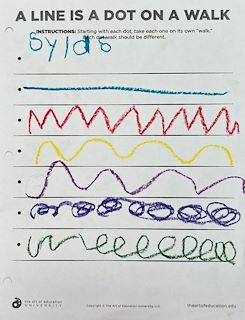 A LINE IS A DOT ON A WALK
INSTRUCTIONS: Starting with each dot, take each one on its own "walk."
Each dot walk should be different.
the art of education
UNIVERSITY
Copyright © The Art of Education University, LLC
theartofeducation.edu